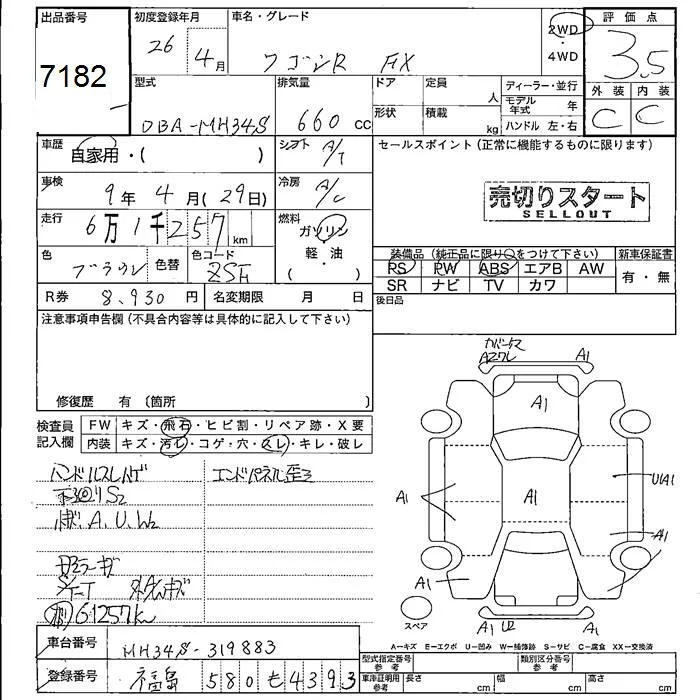 出品番号
7182
初度登録年月
26 4月
車名・グレード
ワゴンR FX
2WD
・
4WD
評価点
3.5
外装 内装
C C
型式
DBA-MH34S
排気量
660 cc
ドア
形状
定員 人
積載 kg
ディーラー・並行
モデル年式 年
ハンドル 左・右
車歴
自家用・( )
シフト
A/T
車検
9年 4月(29日)
冷房
A/C
走行
6万1千257km
燃料
ガソリン
軽・油
( )
色
色替
色コード
ZSH
R券 8,930円
名変期限 月 日
セールスポイント(正常に機能するものに限ります)
売切りスタート
SELLOUT
装備品(純正品に限り○をつけて下さい)
PS PW ABS エアB AW
SR ナビ TV カワ
新車保証書
有・無
後日品
注意事項申告欄(不具合内容等は具体的に記入して下さい)
修復歴 有(箇所 )
検査員記入欄
FW キズ・飛石・ヒビ割・リペア跡・X要
内装 キズ・汚レ・コゲ・穴・スレ・キレ・破レ
ハンドルスレハゲ
エンドパネル歪ミ
A.U.W2
61257km
A1
A1
A1
A1
A1
U1A1
A1
A1
A1
A1
U2
A1
スペア
A-キズ E-エクボ U-凹み W-補修跡 S-サビ C-腐食 XX-交換済
車台番号
MH34S-319883
登録番号
福島 580 も 4393
型式指定番号
参考
類別区分番号
参考
車庫証明用
参考
長さ cm
幅 cm
高さ cm